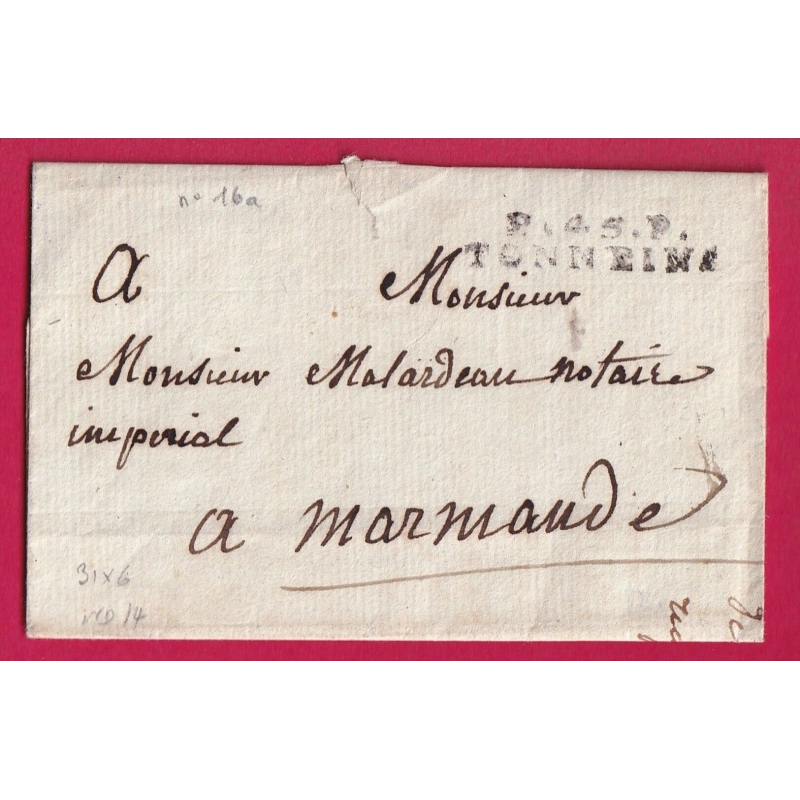 n° 16a
P.45.P.
TONNEINS
A Monsieur
Monsieur Malardeau notaire
imperial
a marmande
31x6